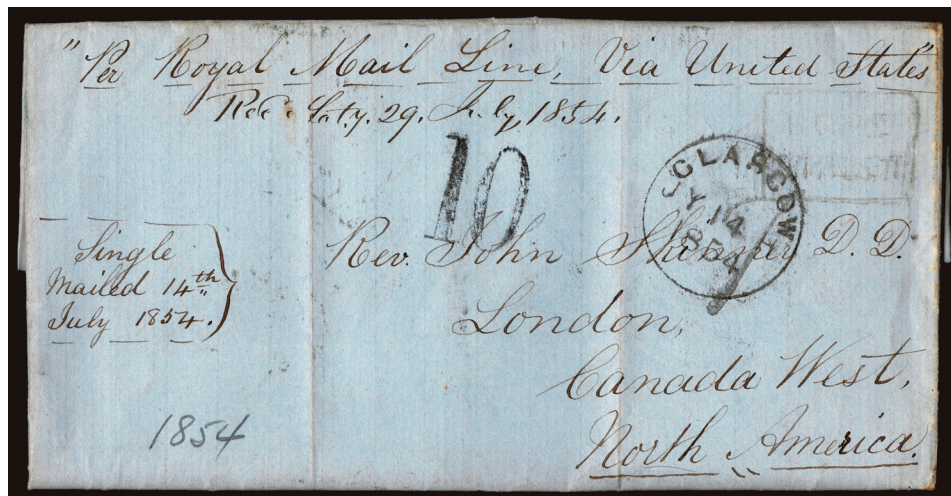 "Per Royal Mail Line, Via United States"
Rec'd Saty. 29. July, 1854.
10
GLASGOW
JY 14
1854
Single
Mailed 14th
July 1854.
Rev. John Skinner D. D.
London,
Canada West,
North America.
1854